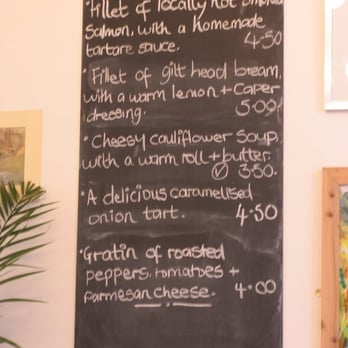 • Fillet of locally hot smoked
Salmon, with a homemade
tartare sauce. 4.50
• Fillet of gilt head bream,
with a warm lemon + caper
dressing. 5.00
• Cheesy cauliflower soup,
with a warm roll + butter.
Ⓥ 3.50.
• A delicious caramelised
onion tart. 4.50
• Gratin of roasted
peppers, tomatoes +
parmesan cheese. 4.00